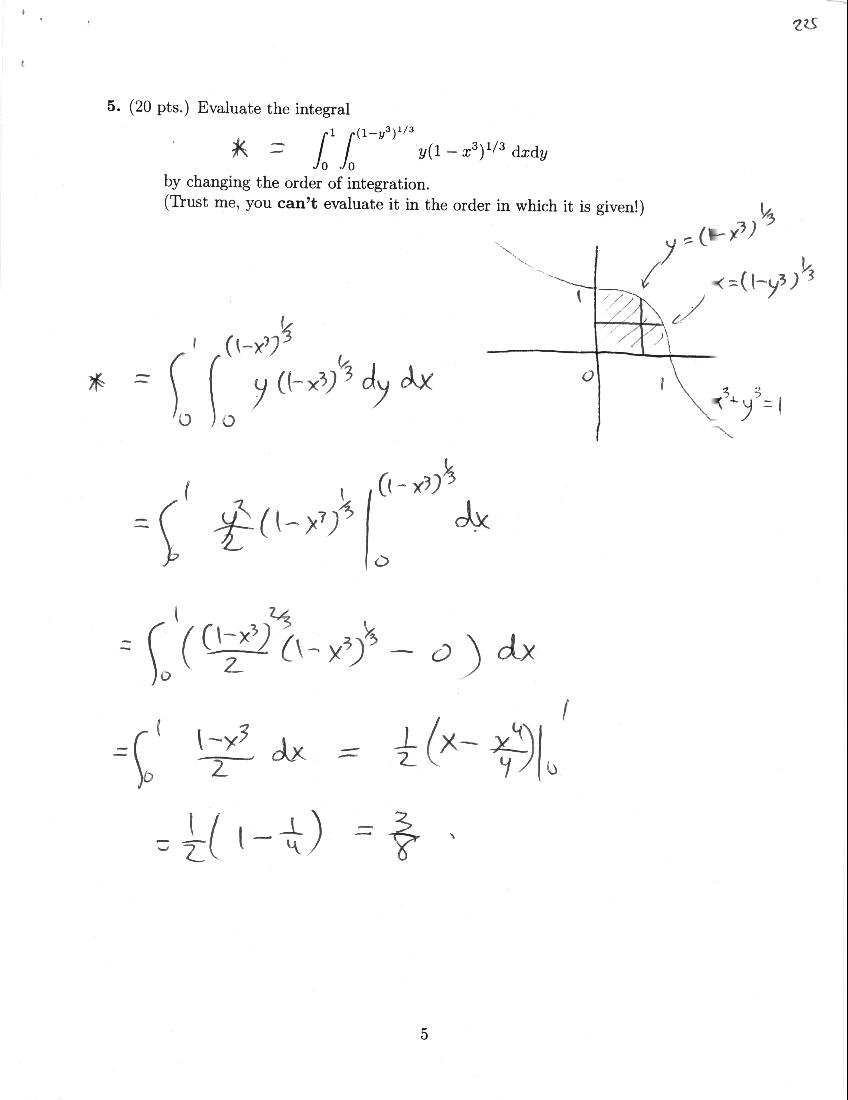 225
5. (20 pts.) Evaluate the integral
* = ∫₀¹ ∫₀^{(1−y³)^{1/3}} y(1 − x³)^{1/3} dxdy
by changing the order of integration.
(Trust me, you can't evaluate it in the order in which it is given!)
y = (1−x³)^{1/3}
x = (1−y³)^{1/3}
1
0 1
x³+y³=1
* = ∫₀¹ ∫₀^{(1−x³)^{1/3}} y (1−x³)^{1/3} dy dx
= ∫₀¹ y²/2 (1−x³)^{1/3} |₀^{(1−x³)^{1/3}} dx
= ∫₀¹ ( (1−x³)^{2/3}/2 (1−x³)^{1/3} − 0 ) dx
= ∫₀¹ (1−x³)/2 dx = 1/2 (x − x⁴/4) |₀¹
= 1/2 ( 1 − 1/4 ) = 3/8 .
5